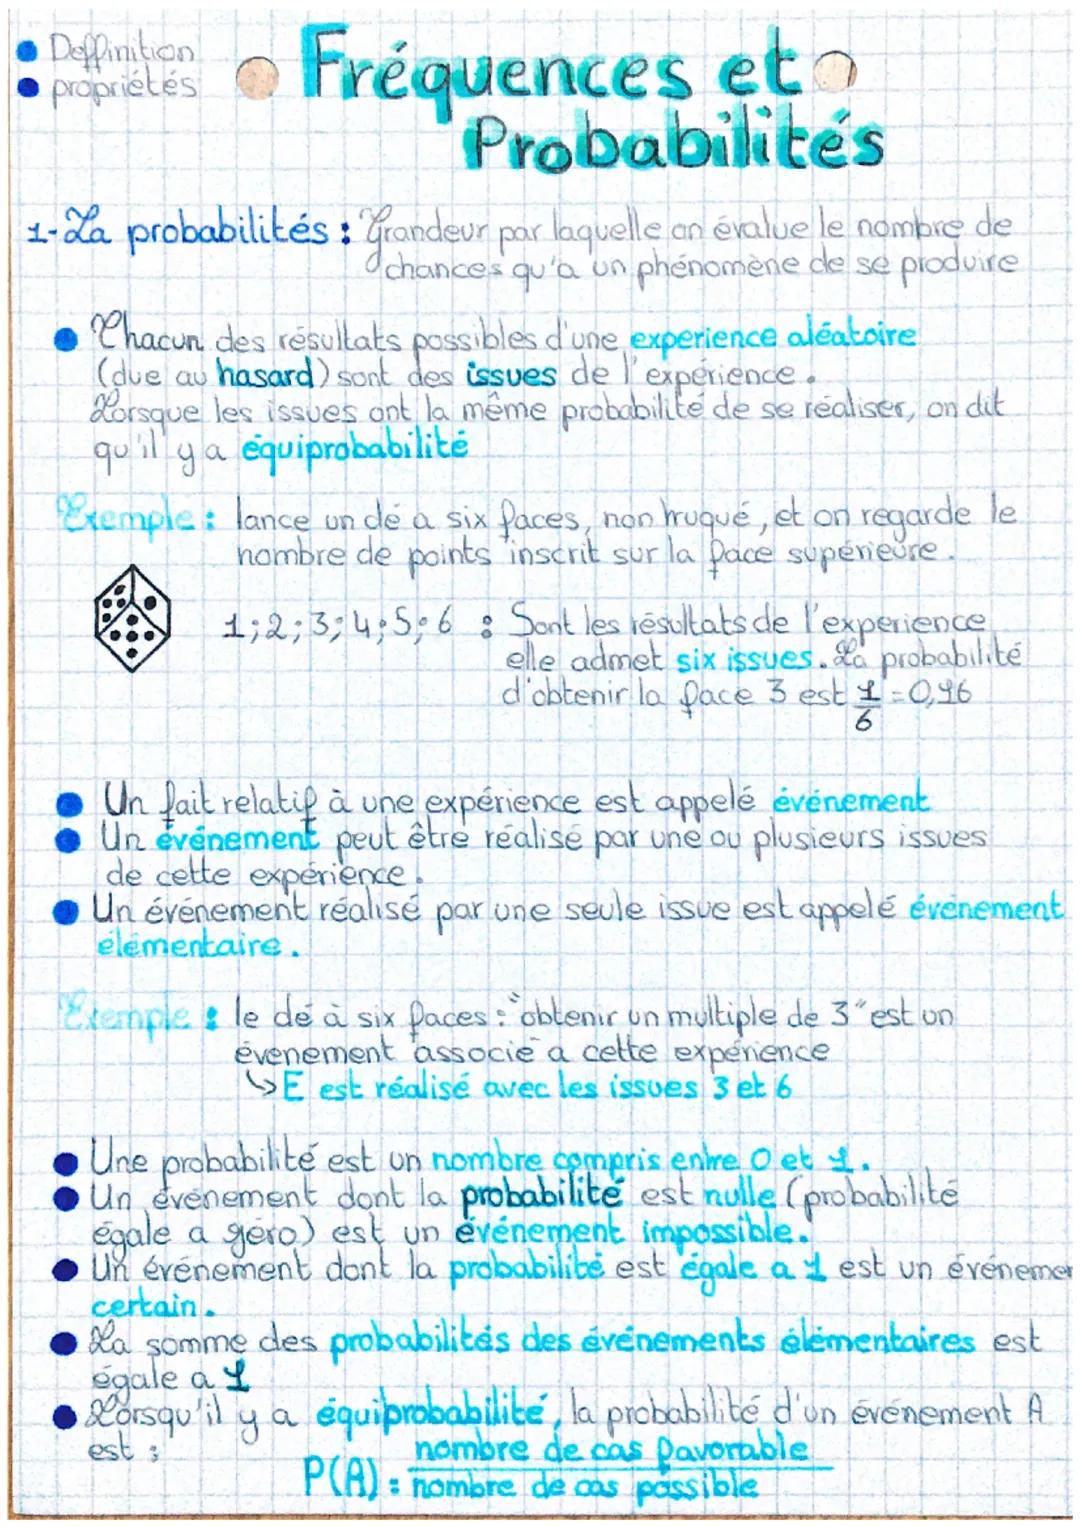 Deffinition
propriétés
Fréquences et
Probabilités
1-La probabilités : Grandeur par laquelle on évalue le nombre de
chances qu'a un phénomène de se produire
Chacun des résultats possibles d'une experience aléatoire
(due au hasard) sont des issues de l'expérience.
Lorsque les issues ont la même probabilité de se réaliser, on dit
qu'il y a équiprobabilité
Exemple : lance un dé a six faces, non truqué, et on regarde le
nombre de points inscrit sur la face supérieure.
1;2;3;4;5;6 : Sont les résultats de l'experience
elle admet six issues. La probabilité
d'obtenir la face 3 est 1/6 = 0,16
Un fait relatif à une expérience est appelé événement
Un événement peut être réalisé par une ou plusieurs issues
de cette expérience.
Un événement réalisé par une seule issue est appelé événement
élémentaire.
Exemple : le dé à six faces : "obtenir un multiple de 3" est un
évenement associé a cette expérience
↳ E est réalisé avec les issues 3 et 6
Une probabilité est un nombre compris entre 0 et 1.
Un événement dont la probabilité est nulle (probabilité
égale a zéro) est un événement impossible.
Un événement dont la probabilité est égale a 1 est un événemen
certain.
La somme des probabilités des événements élémentaires est
égale a 1
Lorsqu'il y a équiprobabilité, la probabilité d'un événement A
est :
nombre de cas favorable
P(A) : nombre de cas possible